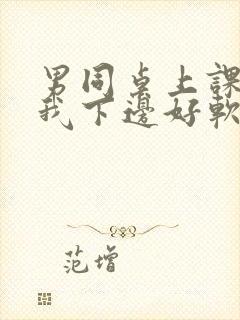 男同桌上課
我下邊好軟
范增